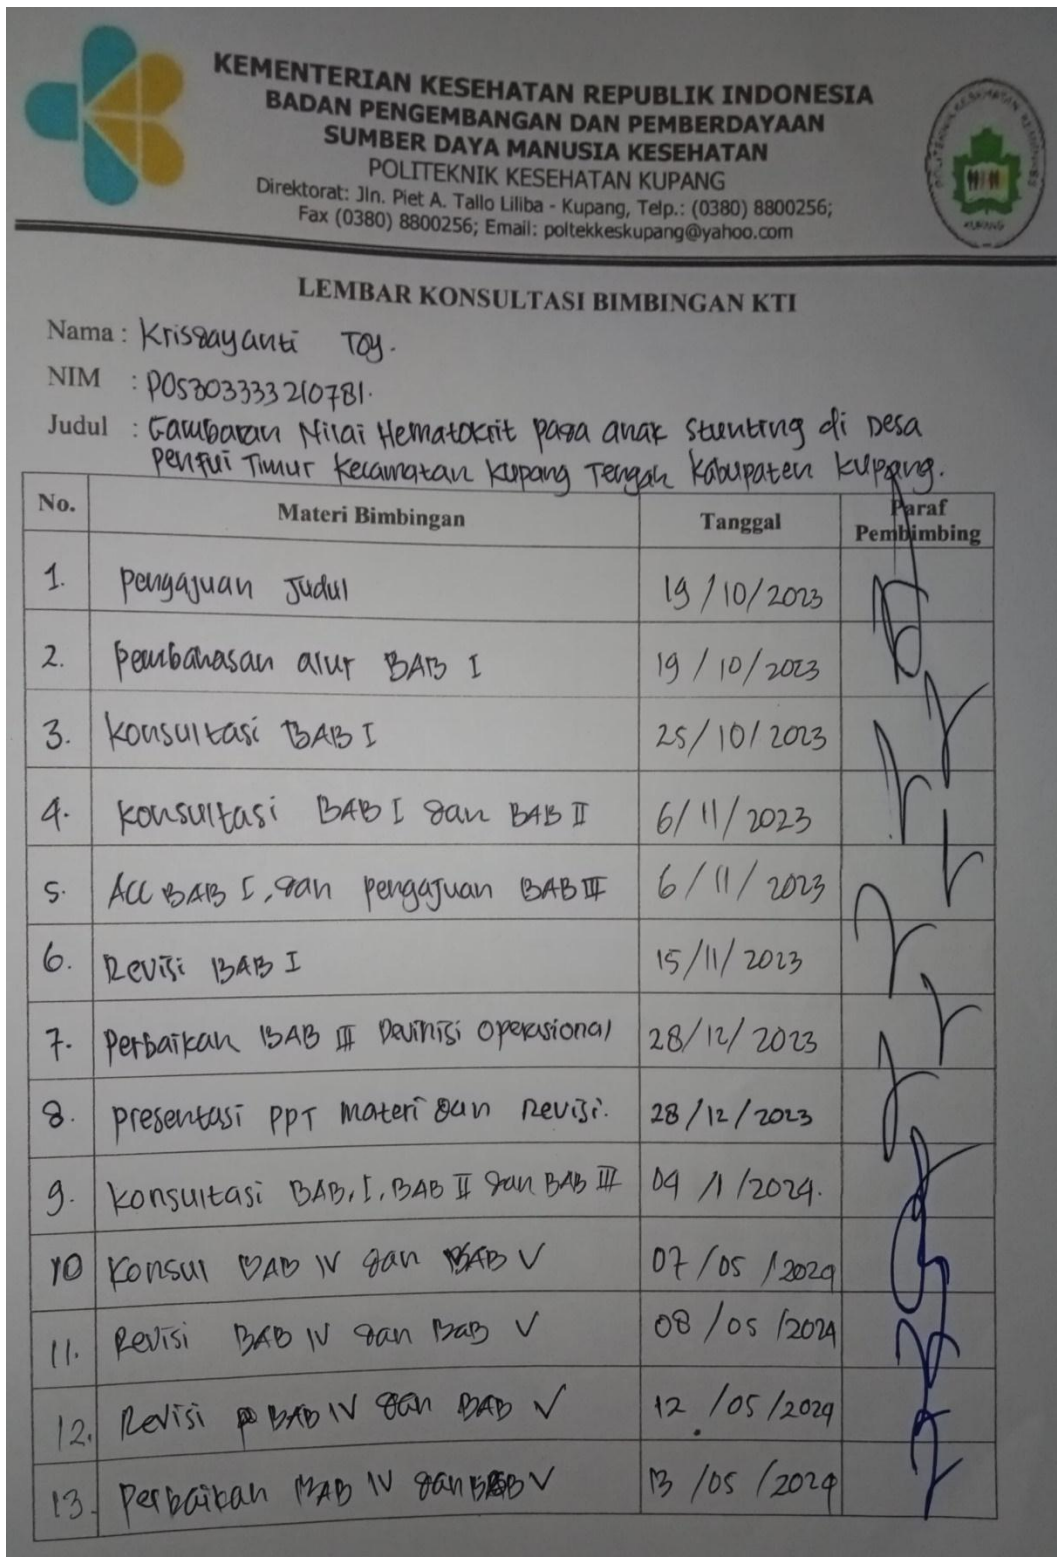 KEMENTERIAN KESEHATAN REPUBLIK INDONESIA
BADAN PENGEMBANGAN DAN PEMBERDAYAAN
SUMBER DAYA MANUSIA KESEHATAN
POLITEKNIK KESEHATAN KUPANG
Direktorat: Jln. Piet A. Tallo Liliba - Kupang, Telp.: (0380) 8800256;
Fax (0380) 8800256; Email: poltekkeskupang@yahoo.com
LEMBAR KONSULTASI BIMBINGAN KTI
Nama : Krisdayanti Toy.
NIM : PO5303333210781.
Judul : Gambaran Nilai Hematokrit pada anak Stunting di Desa
Penfui Timur Kecamatan Kupang Tengah Kabupaten Kupang.
No. Materi Bimbingan Tanggal Paraf Pembimbing
1. Pengajuan Judul 19/10/2023
2. Pembahasan alur BAB I 19/10/2023
3. Konsultasi BAB I 25/10/2023
4. Konsultasi BAB I dan BAB II 6/11/2023
5. ACC BAB I, dan pengajuan BAB III 6/11/2023
6. Revisi BAB I 15/11/2023
7. Perbaikan BAB III Devinisi Operasional 28/12/2023
8. presentasi PPT materi dan Revisi. 28/12/2023
9. Konsultasi BAB, I, BAB II dan BAB III 04/1/2024.
10 Konsul BAB IV dan BAB V 07/05/2024
11. Revisi BAB IV dan BaB V 08/05/2024
12. Revisi BAB IV dan BAB V 12/05/2024
13. Perbaikan BAB IV dan BAB V 13/05/2024